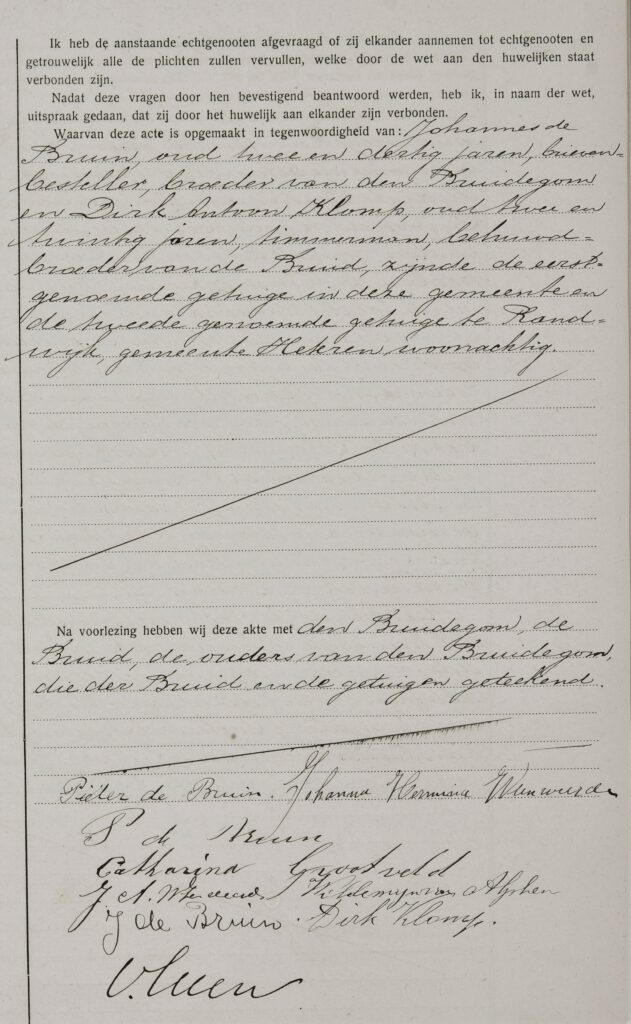 Ik heb de aanstaande echtgenooten afgevraagd of zij elkander aannemen tot echtgenooten en
getrouwelijk alle de plichten zullen vervullen, welke door de wet aan den huwelijken staat
verbonden zijn.
Nadat deze vragen door hen bevestigend beantwoord werden, heb ik, in naam der wet,
uitspraak gedaan, dat zij door het huwelijk aan elkander zijn verbonden.
Waarvan deze acte is opgemaakt in tegenwoordigheid van: Johannes de
Bruin, oud twee en dertig jaren, brieven-
besteller, broeder van den Bruidegom
en Dirk Antoon Klomp, oud twee en
twintig jaren, timmerman, behuwd-
broeder van de Bruid, zijnde de eerst-
genoemde getuige in deze gemeente en
de tweede genoemde getuige te Rand-
wijk, gemeente Heteren woonachtig.
Na voorlezing hebben wij deze akte met den Bruidegom, de
Bruid, de ouders van den Bruidegom,
die der Bruid en de getuigen geteekend.
Pieter de Bruin. Johanna Hermina
P de Bruin
Catharina Grootveld
J A. Alphen
J de Bruin. Dirk Klomp.